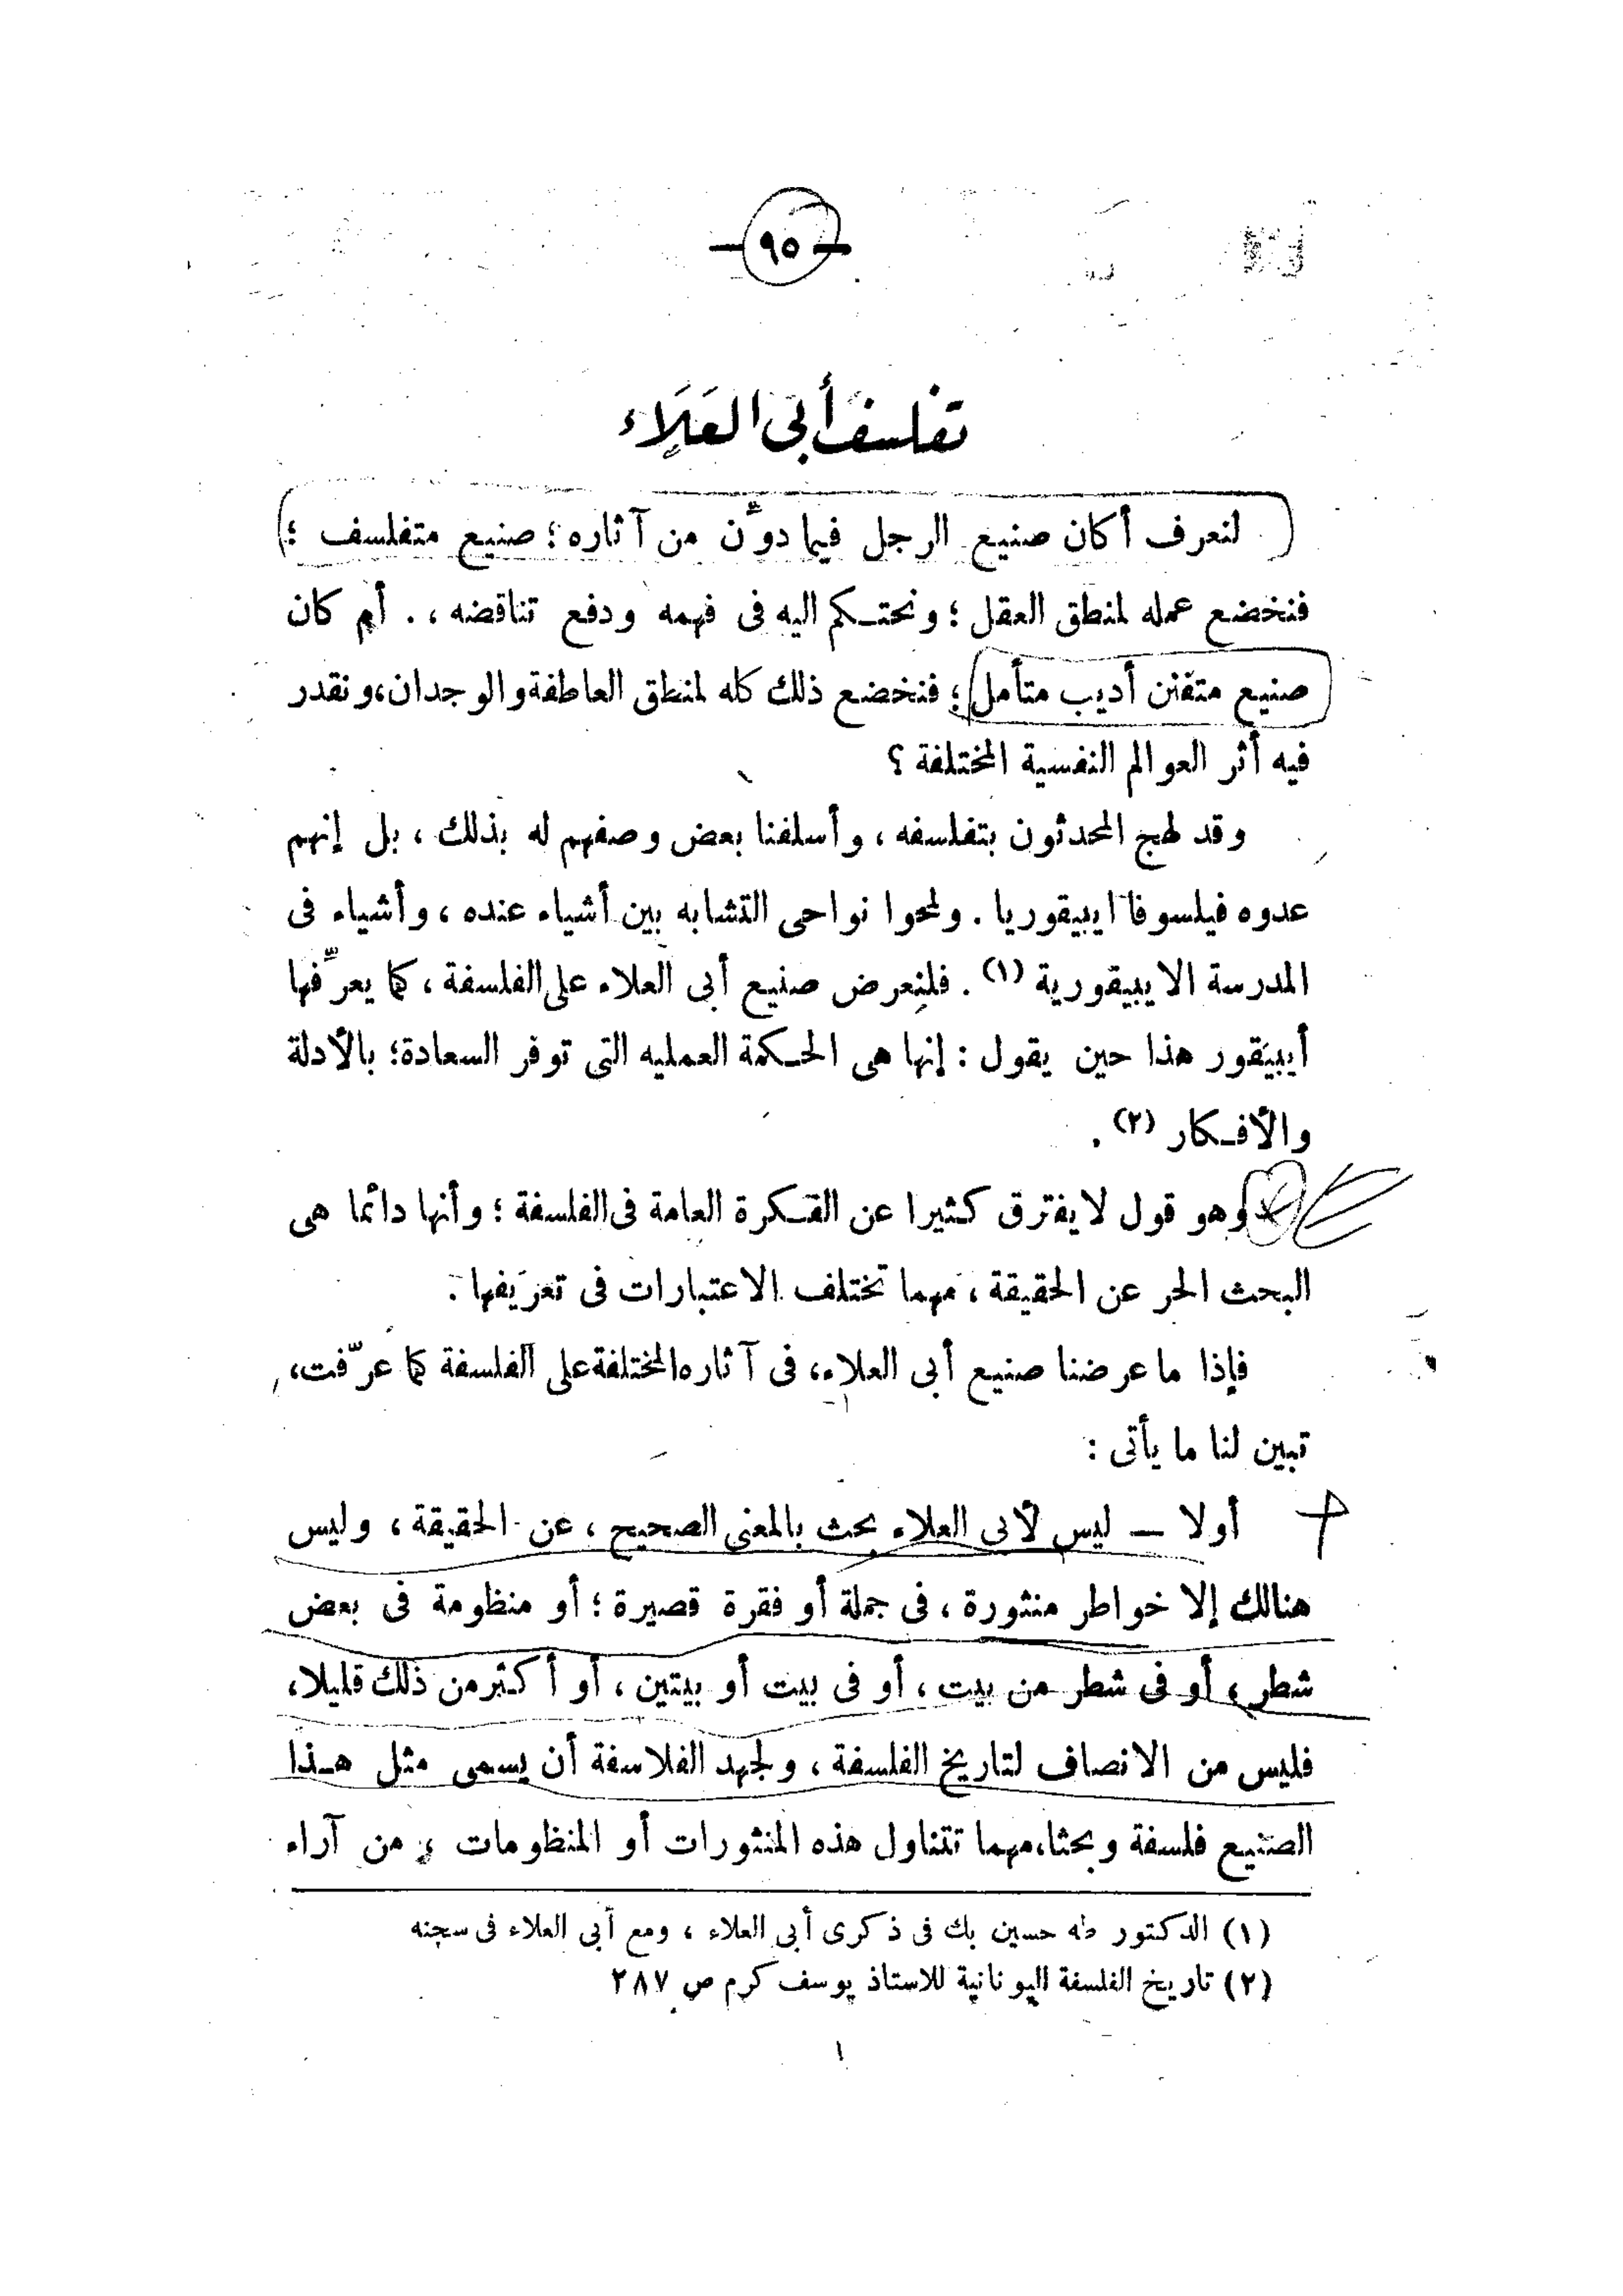 — ٩٥ —
تفلسف أبى العَلَاء
لنعرف أكان صنيع الرجل فيما دوَّن من آثاره ؛ صنيع متفلسف ؛
فنخضع عمله لمنطق العقل ؛ ونحتكم اليه فى فهمه ودفع تناقضه ، . أم كان
صنيع متفنن أديب متأمل ؛ فنخضع ذلك كله لمنطق العاطفة والوجدان، ونقدر
فيه أثر العوالم النفسية المختلفة ؟
وقد لهج المحدثون بتفلسفه ، وأسلفنا بعض وصفهم له بذلك ، بل إنهم
عدوه فيلسوفا ايبيقوريا . ولمحوا نواحى التشابه بين أشياء عنده ، وأشياء فى
المدرسة الايبيقورية (١) . فلنعرض صنيع أبى العلاء على الفلسفة ، كما يعرِّفها
أيبيقور هذا حين يقول : إنها هى الحكمة العمليه التى توفر السعادة؛ بالأدلة
والأفكار (٢) .
وهو قول لا يفترق كثيرا عن الفكرة العامة فى الفلسفة ؛ وأنها دائما هى
البحث الحر عن الحقيقة ، مهما تختلف الاعتبارات فى تعريفها .
فإذا ما عرضنا صنيع أبى العلاء، فى آثاره المختلفة على الفلسفة كما عرّفت،
تبين لنا ما يأتى :
أولا — ليس لأبى العلاء بحث بالمعنى الصحيح ، عن الحقيقة ، وليس
هنالك إلا خواطر منثورة ، فى جملة أو فقرة قصيرة ؛ أو منظومة فى بعض
شطر ، أو فى شطر من بيت ، أو فى بيت أو بيتين ، أو أكثر من ذلك قليلا،
فليس من الانصاف لتاريخ الفلسفة ، ولجهد الفلاسفة أن يسمى مثل هذا
الصنيع فلسفة وبحثا، مهما تتناول هذه المنثورات أو المنظومات ؛ من آراء
(١) الدكتور طه حسين بك فى ذكرى أبى العلاء ، ومع أبى العلاء فى سجنه
(٢) تاريخ الفلسفة اليونانية للاستاذ يوسف كرم ص ٢٨٧